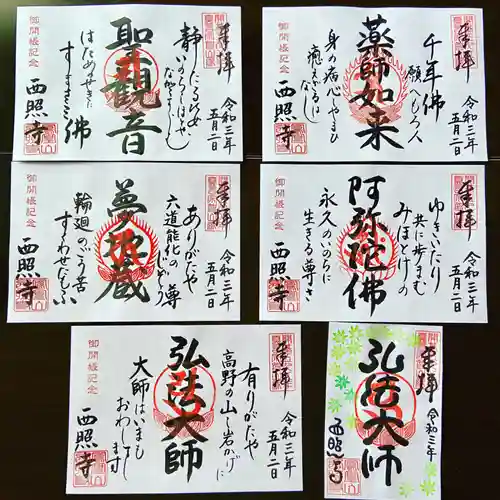 奉拝
令和三年
五月二日
聖観音
佛
御開帳記念
西照寺
奉拝
令和三年
五月二日
千年佛
願へもろ人
薬師如来
身の病心のやまひ
癒えざるは
なし
御開帳記念
西照寺
奉拝
令和三年
五月二日
ありがたや
六道能化の
尊
夢地蔵
輪廻のごう苦
すくわせたもふ
御開帳記念
西照寺
奉拝
令和三年
五月二日
ゆきいたり
共に歩まむ
みほとけの
阿弥陀佛
永久のいのちに
生きる尊さ
御開帳記念
西照寺
奉拝
令和三年
五月二日
有りがたや
高野の山の岩かげに
弘法大師
大師はいまも
おわします
御開帳記念
西照寺
奉拝
令和三年
弘法大師
西照寺